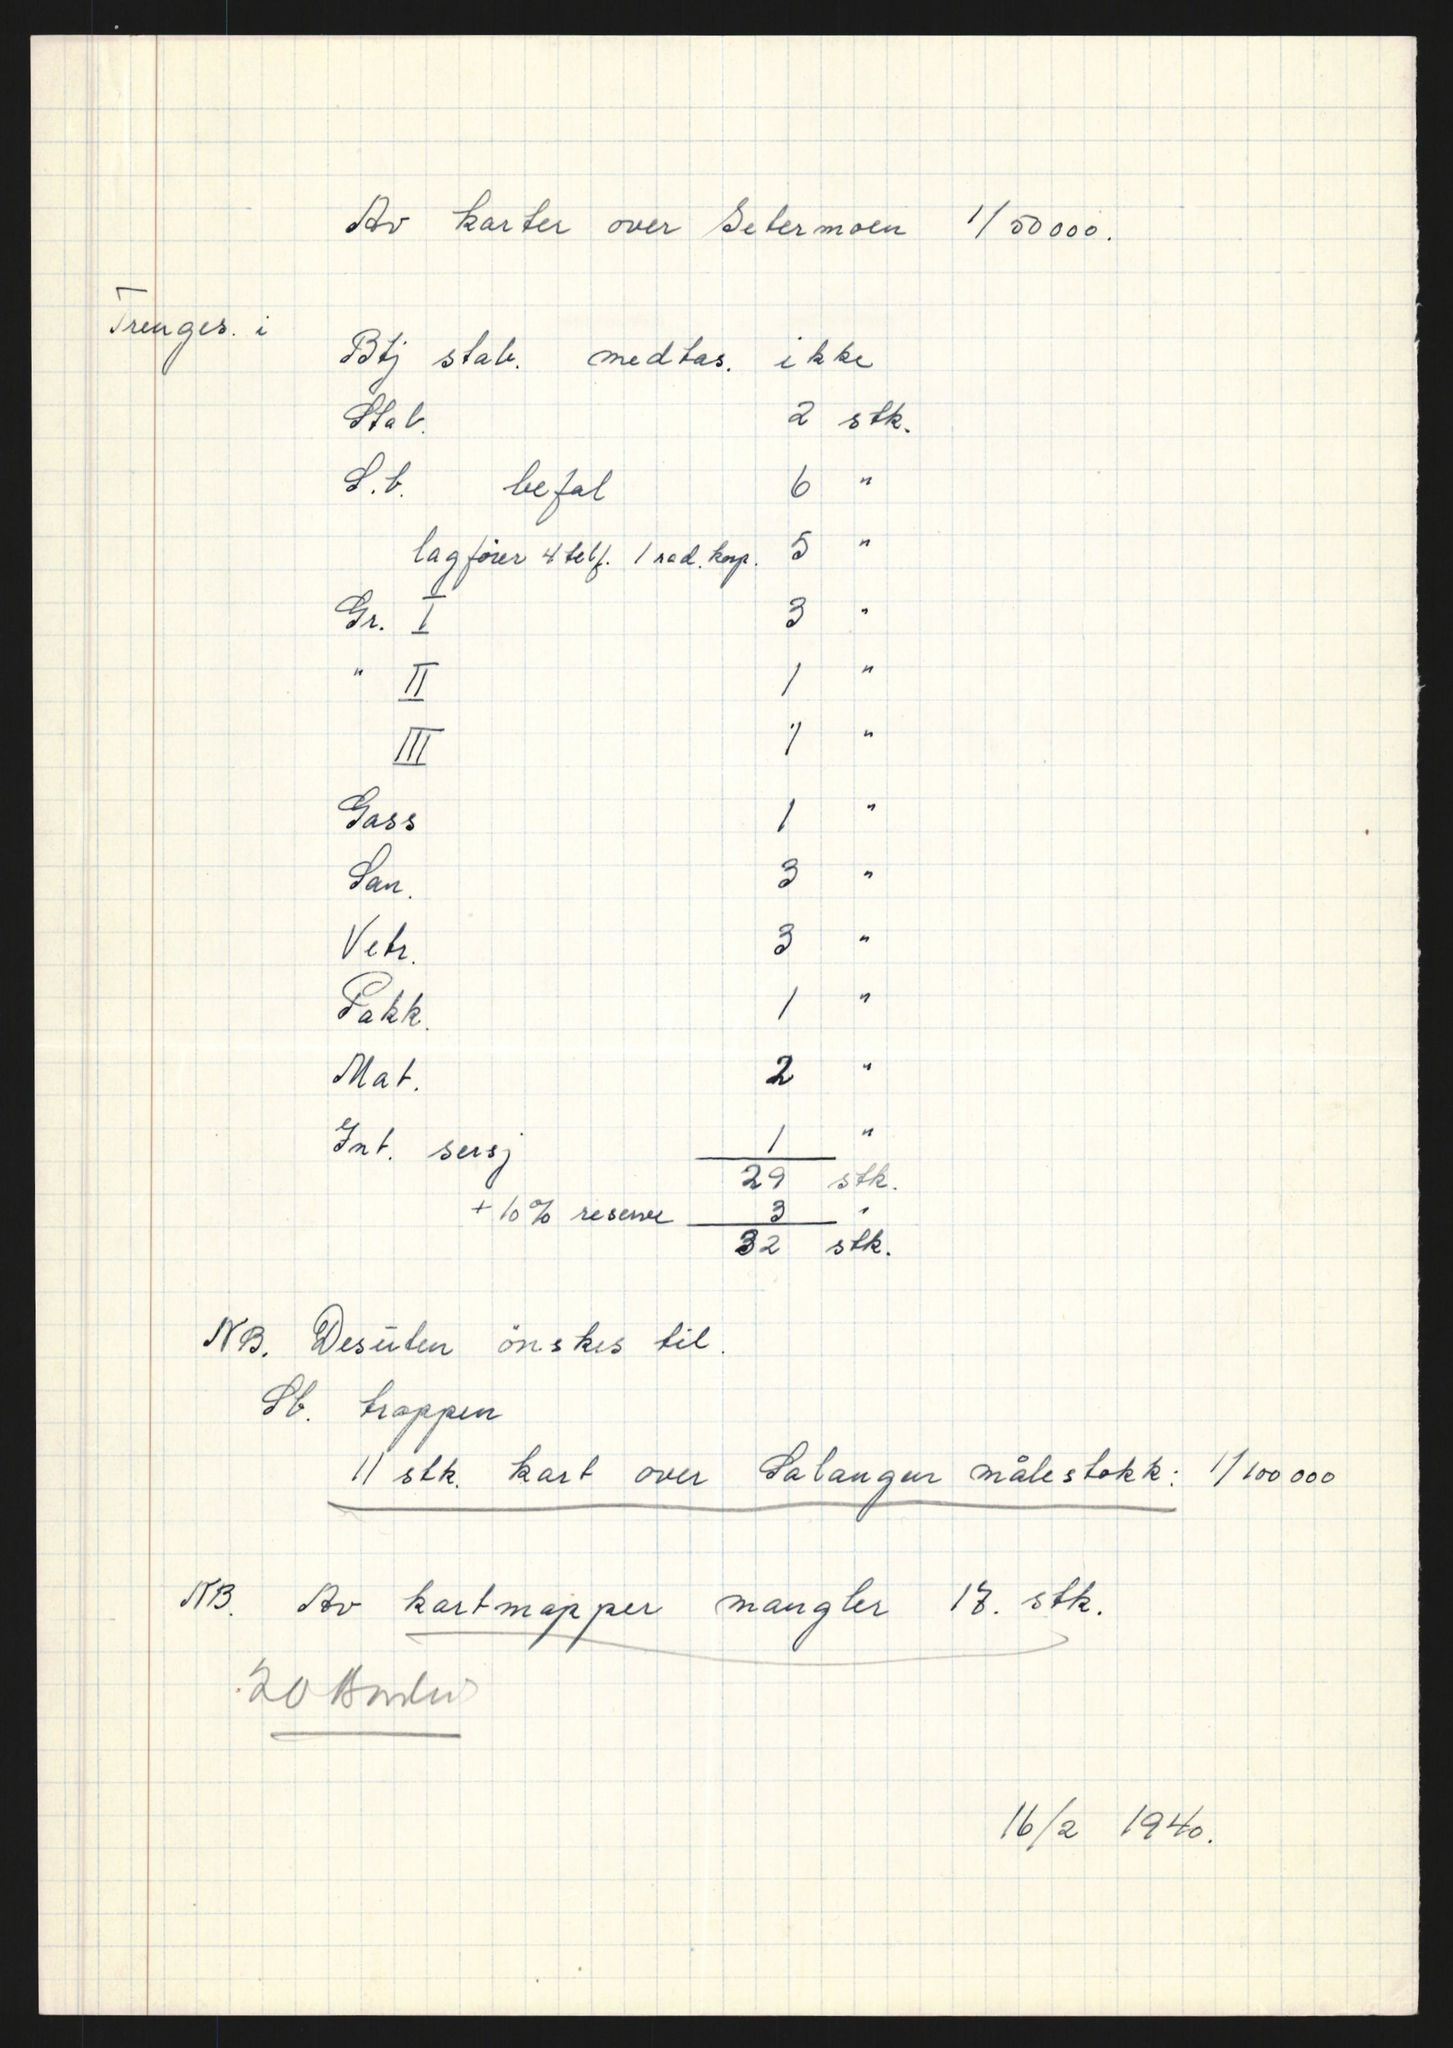 Av karter over Setermoen 1/50000.
Trenges. i
Btj stab. medtas. ikke
Stab. 2 stk.
S.b. befal 6 "
lagfører 4 telf. 1 rad. korp. 5 "
Gr. I 3 "
" II 1 "
III 1 "
Gass 1 "
San. 3 "
Vetr. 3 "
Pakk. 1 "
Mat. 2 "
Int. sersj 1 "
29 stk.
+ 10% reserve 3 "
32 stk.
NB. Desuten önskes til.
Sb. troppen
11 stk. kart over Salangen målestokk: 1/100000
NB. Av kartmapper mangler 17. stk.
20
16/2 1940.